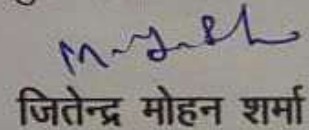 जितेन्द्र मोहन शर्मा